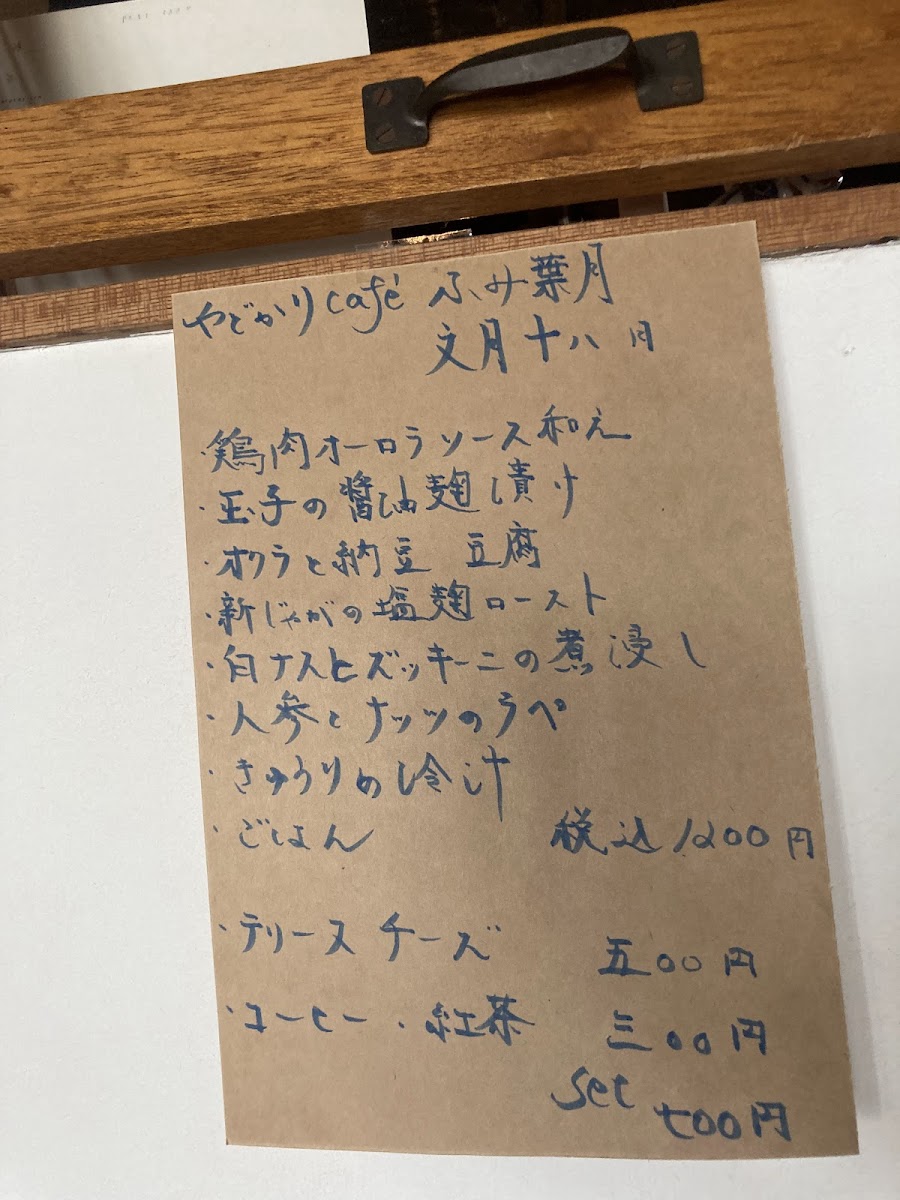 やどかりcafé ふみ葉月
文月十八日
・鶏肉オーロラソース和え
・玉子の醤油麹漬け
・オクラと納豆 豆腐
・新じゃがの塩麹ロースト
・白ナスとズッキーニの煮浸し
・人参とナッツのラペ
・きゅうりの冷汁
・ごはん 税込1200円
・テリーヌチーズ 五00円
・コーヒー・紅茶 三00円
set 七00円